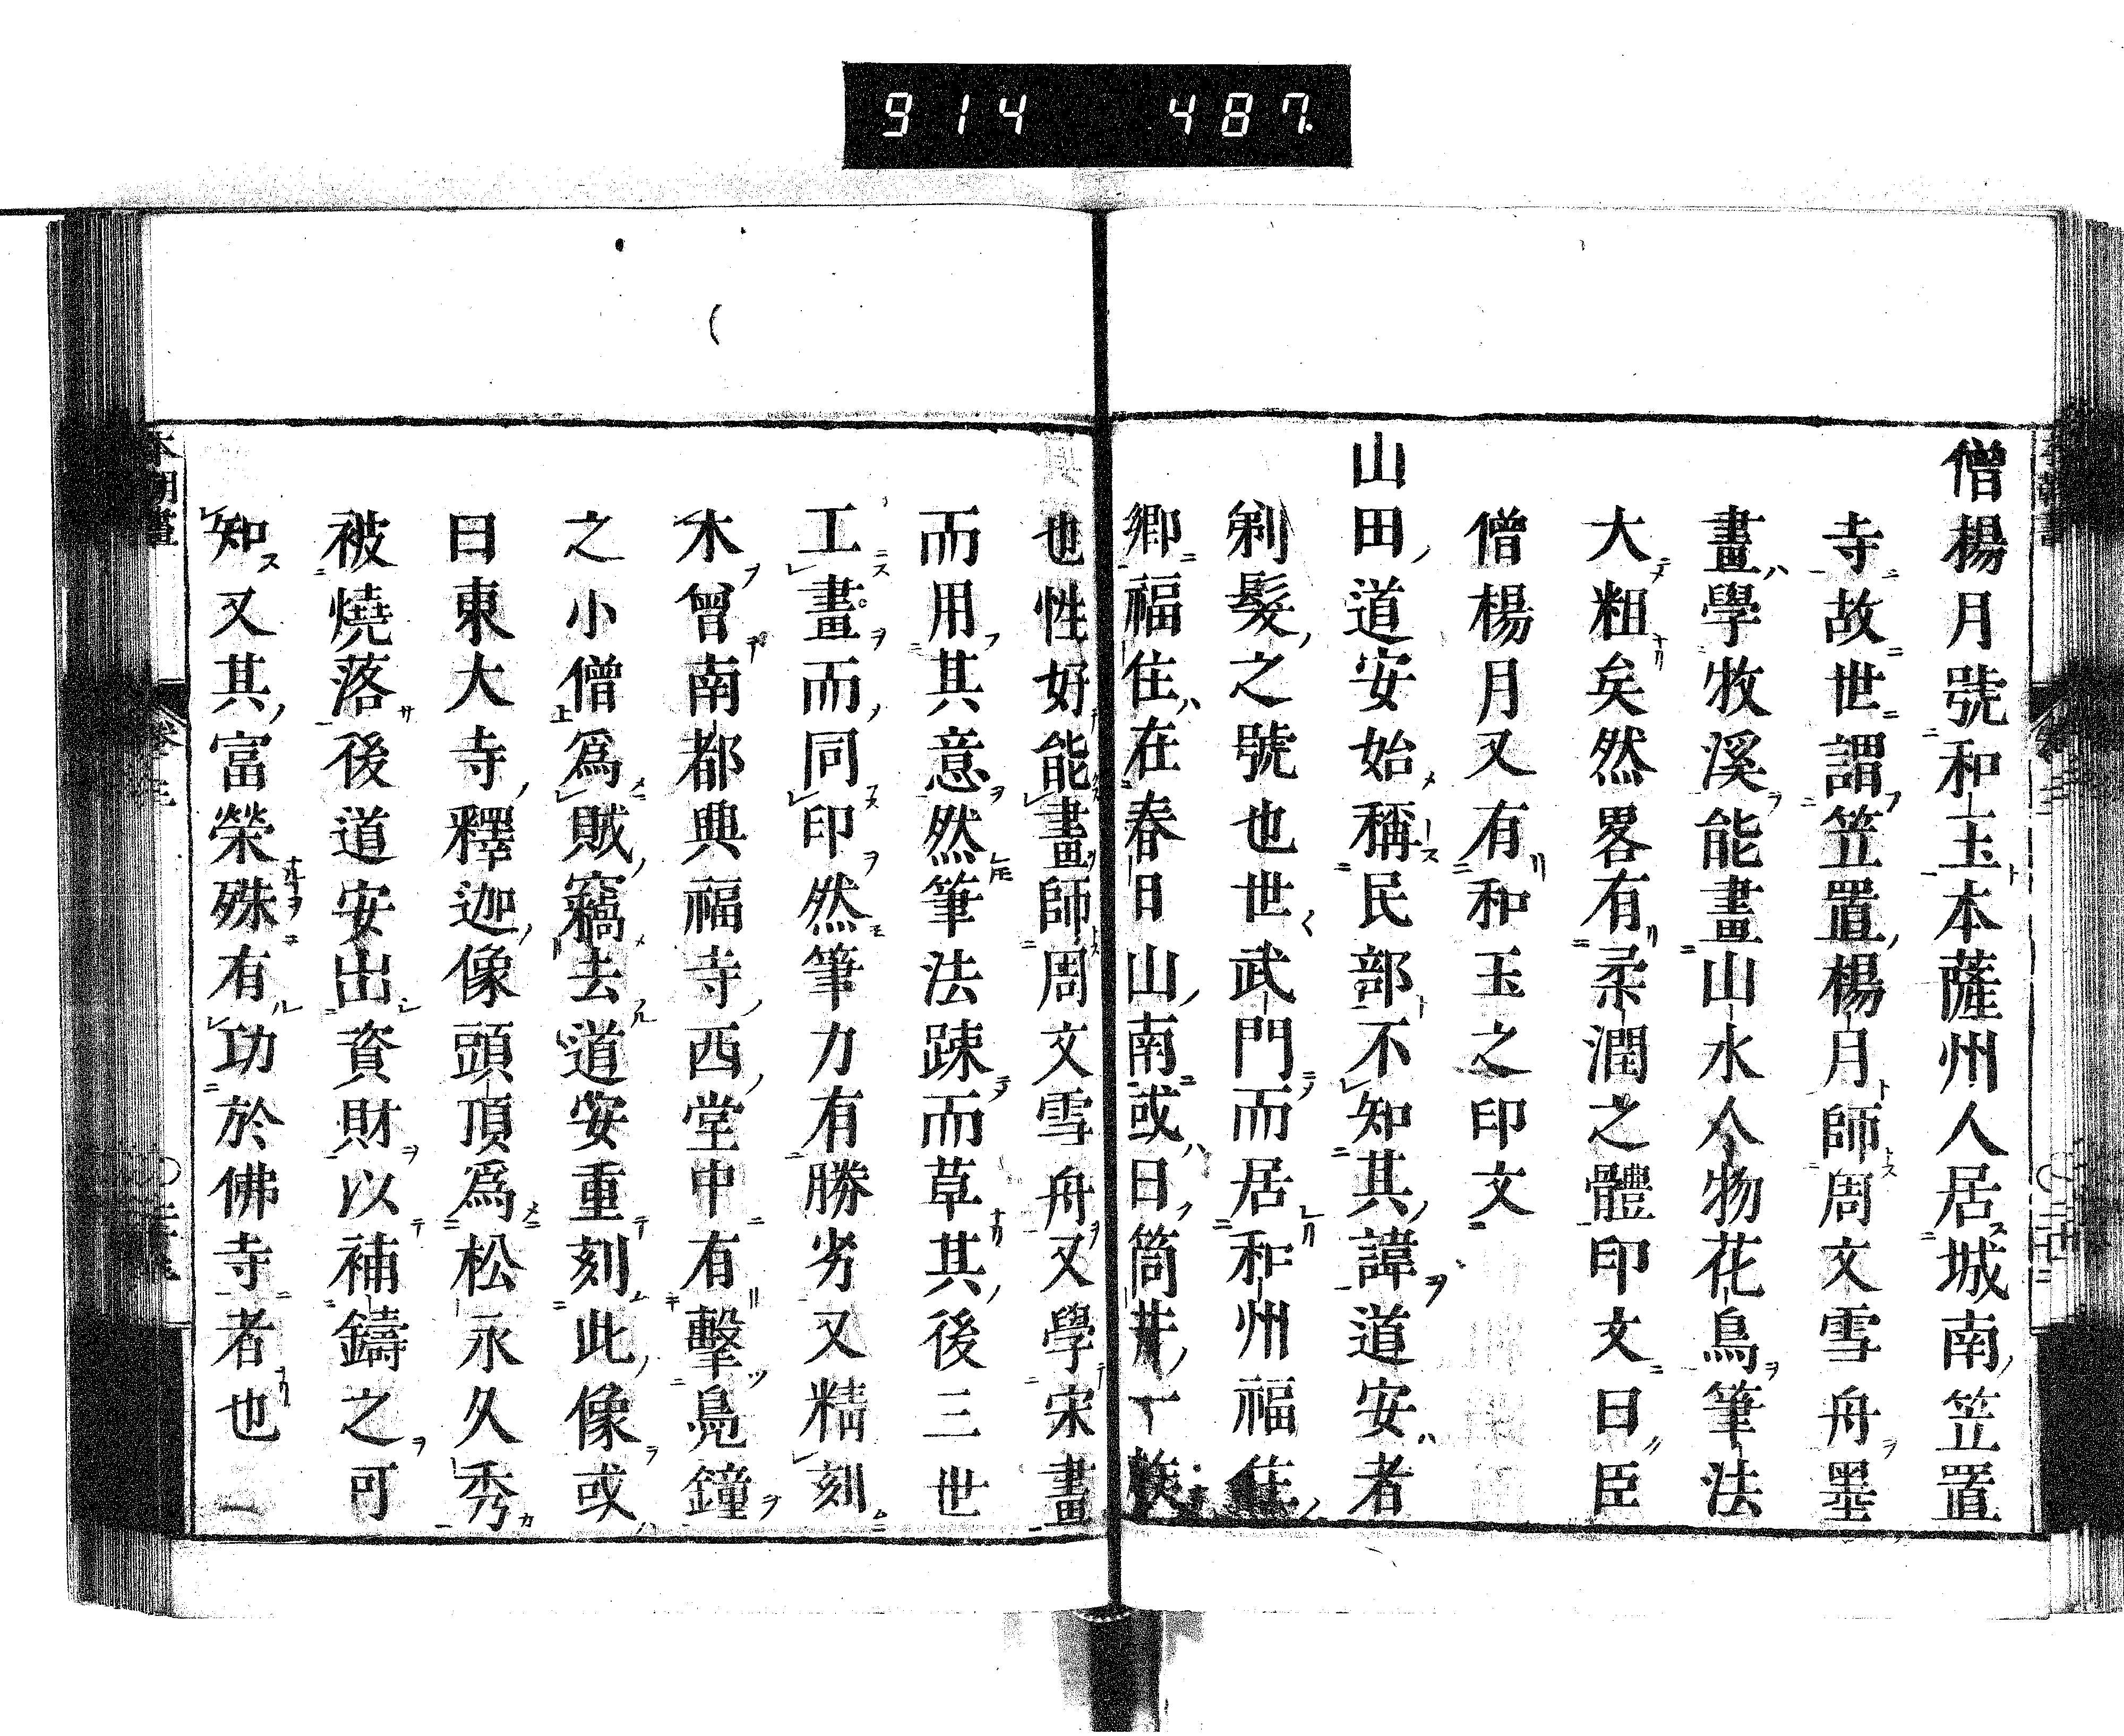 914 487.
僧楊月號和玉本薩州人居城南笠置
寺故世謂笠置楊月師周文雪舟墨
畫學牧溪能畫山水人物花鳥筆法
大粗矣然畧有柔潤之體印文曰臣
僧楊月又有和玉之印文
山田道安始稱民部不知其諱道安者
剃髮之號也世武門而居和州福住
鄉福住在春日山南或曰筒井一族
也性好能畫師周文雪舟又學宋畫
而用其意然筆法踈而草其後三世
工畫而同印然筆力有勝劣又精刻
木曾南都興福寺西堂中有擊鳧鐘
之小僧爲賊竊去道安重刻此像或
曰東大寺釋迦像頭頂爲松永久秀
被燒落後道安出資財以補鑄之可
知又其富榮殊有功於佛寺者也
本朝畫